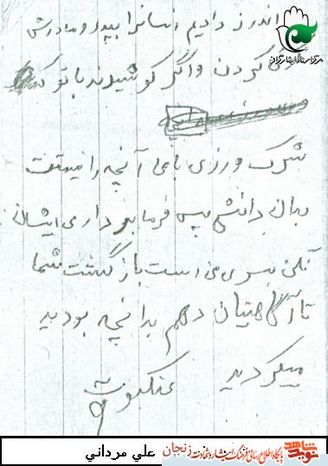 اندرز دادیم انسانرا بپدر و مادرش
کردن و اگر کوشیدند با تو که
شرک ورزی بامن آنچه را نیست
بدان دانشی پس فرمانبرداری ایشان
نکن بسوی من است بازگشت شما
تا آگاهیتان دهم بدانچه بودید
میکردید عنکبوت ۹
نوید شاهد
پایگاه اطلاع رسانی فرهنگ ایثار و شهادت زنجان
علی مردانی